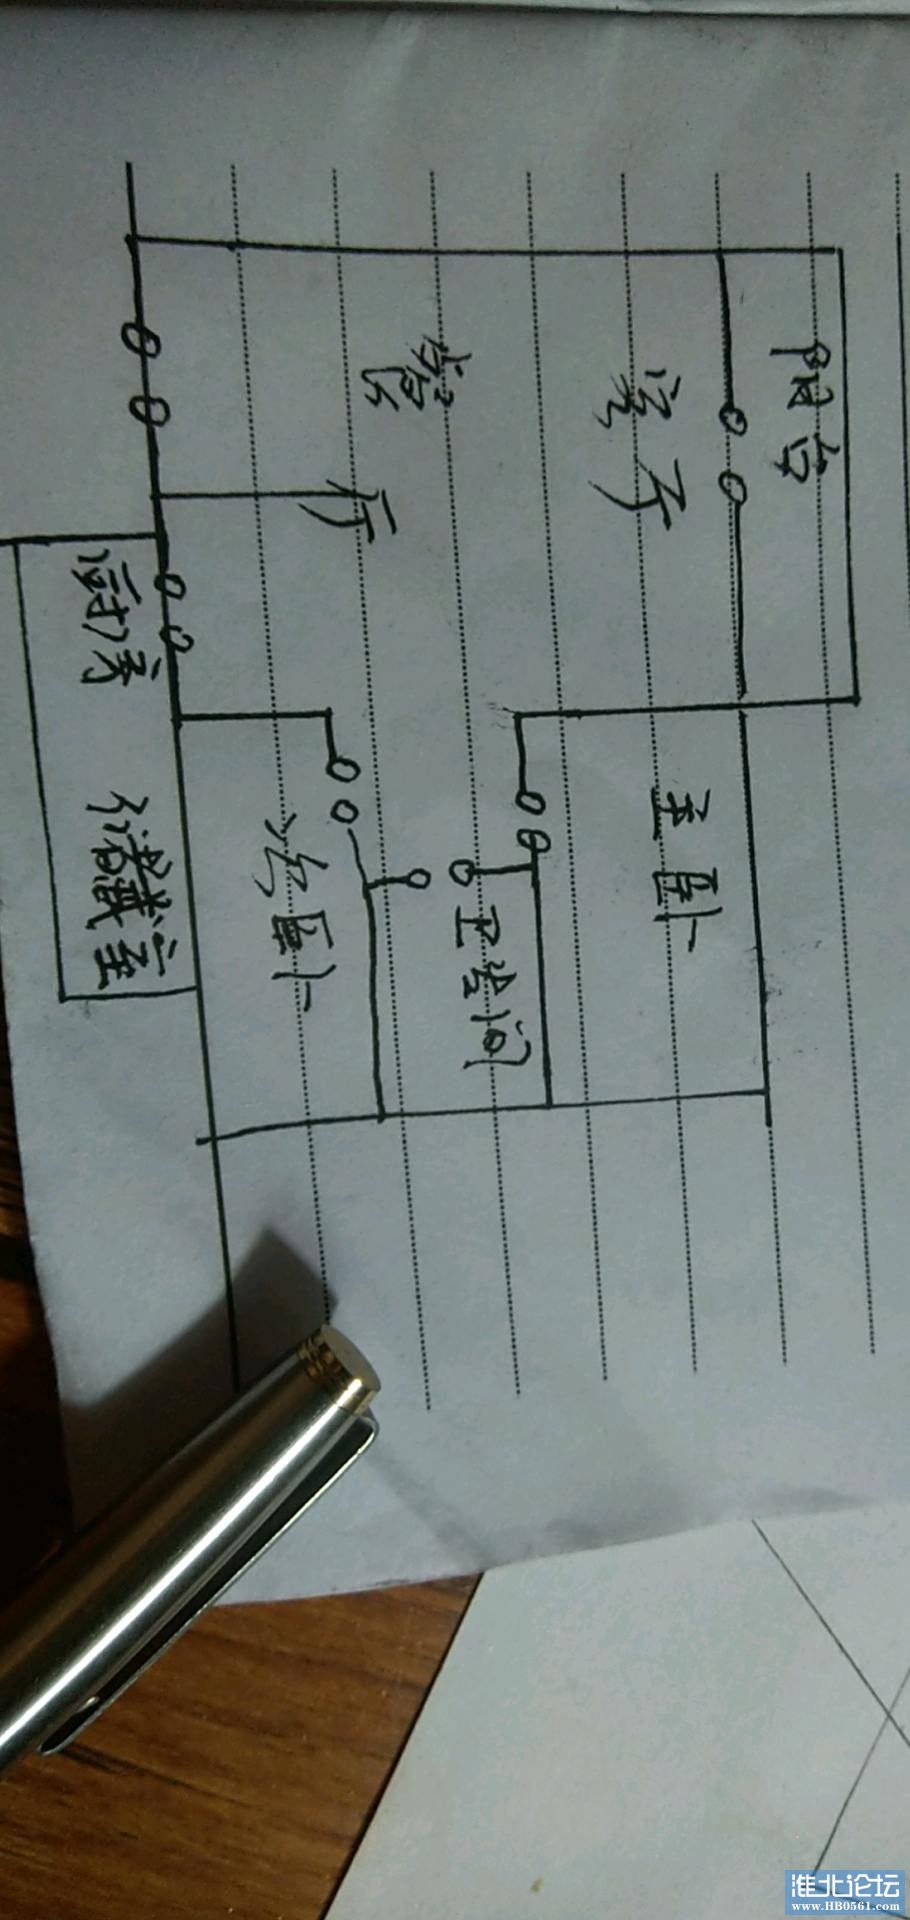 阳台
客厅
餐厅
主卧
卫生间
次卧
厨房
储藏室
淮北论坛
www.HB0561.com